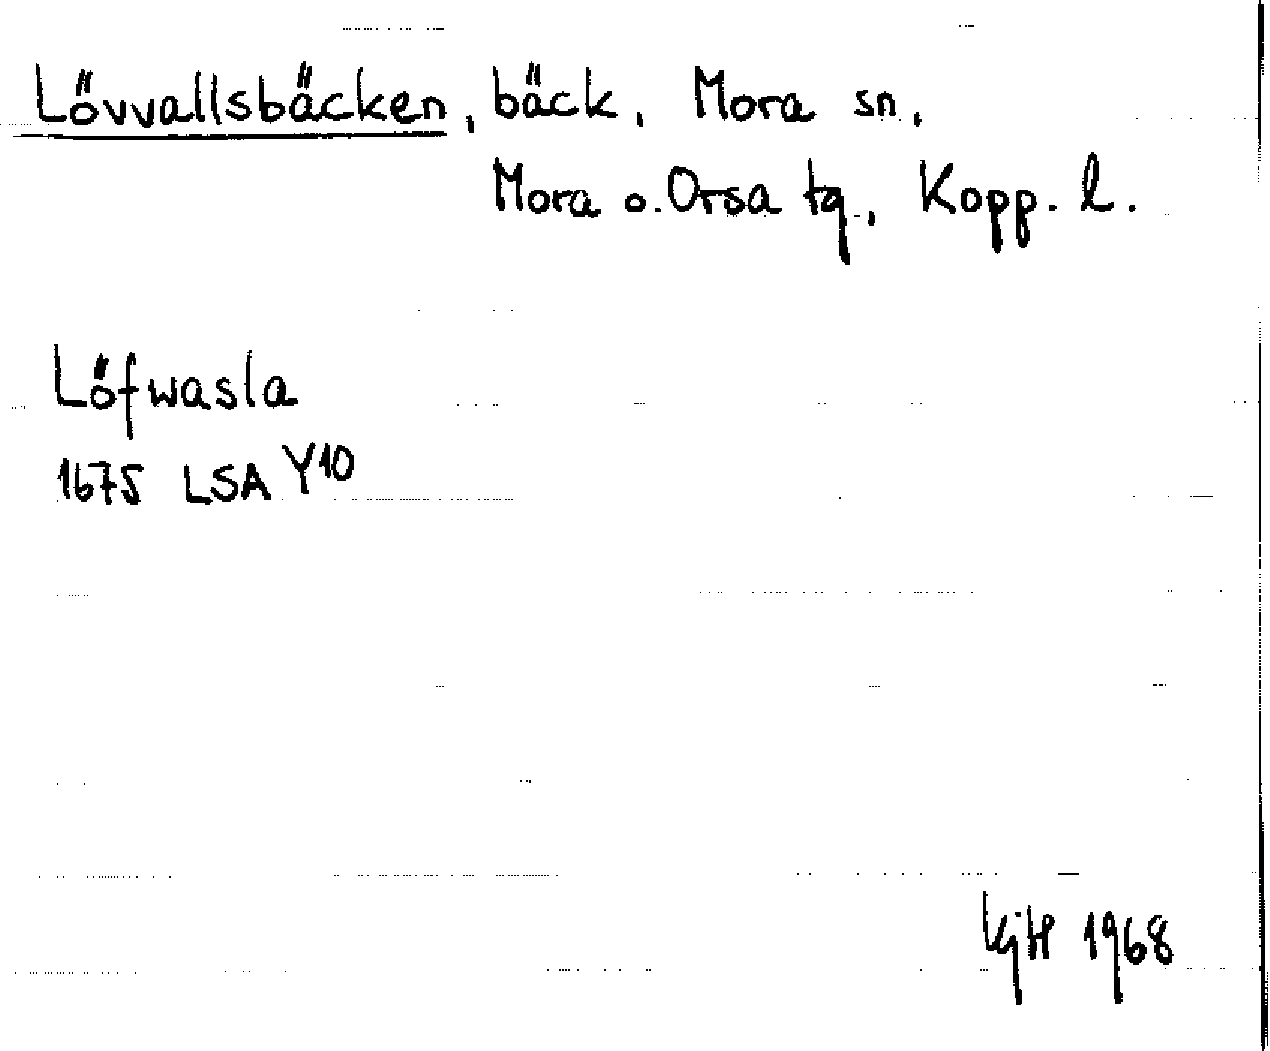 Lövvallsbäcken, bäck, Mora sn,
Mora o. Orsa tg, Kopp. l.
Löfwasla
1675 LSA Y10
KjH 1968